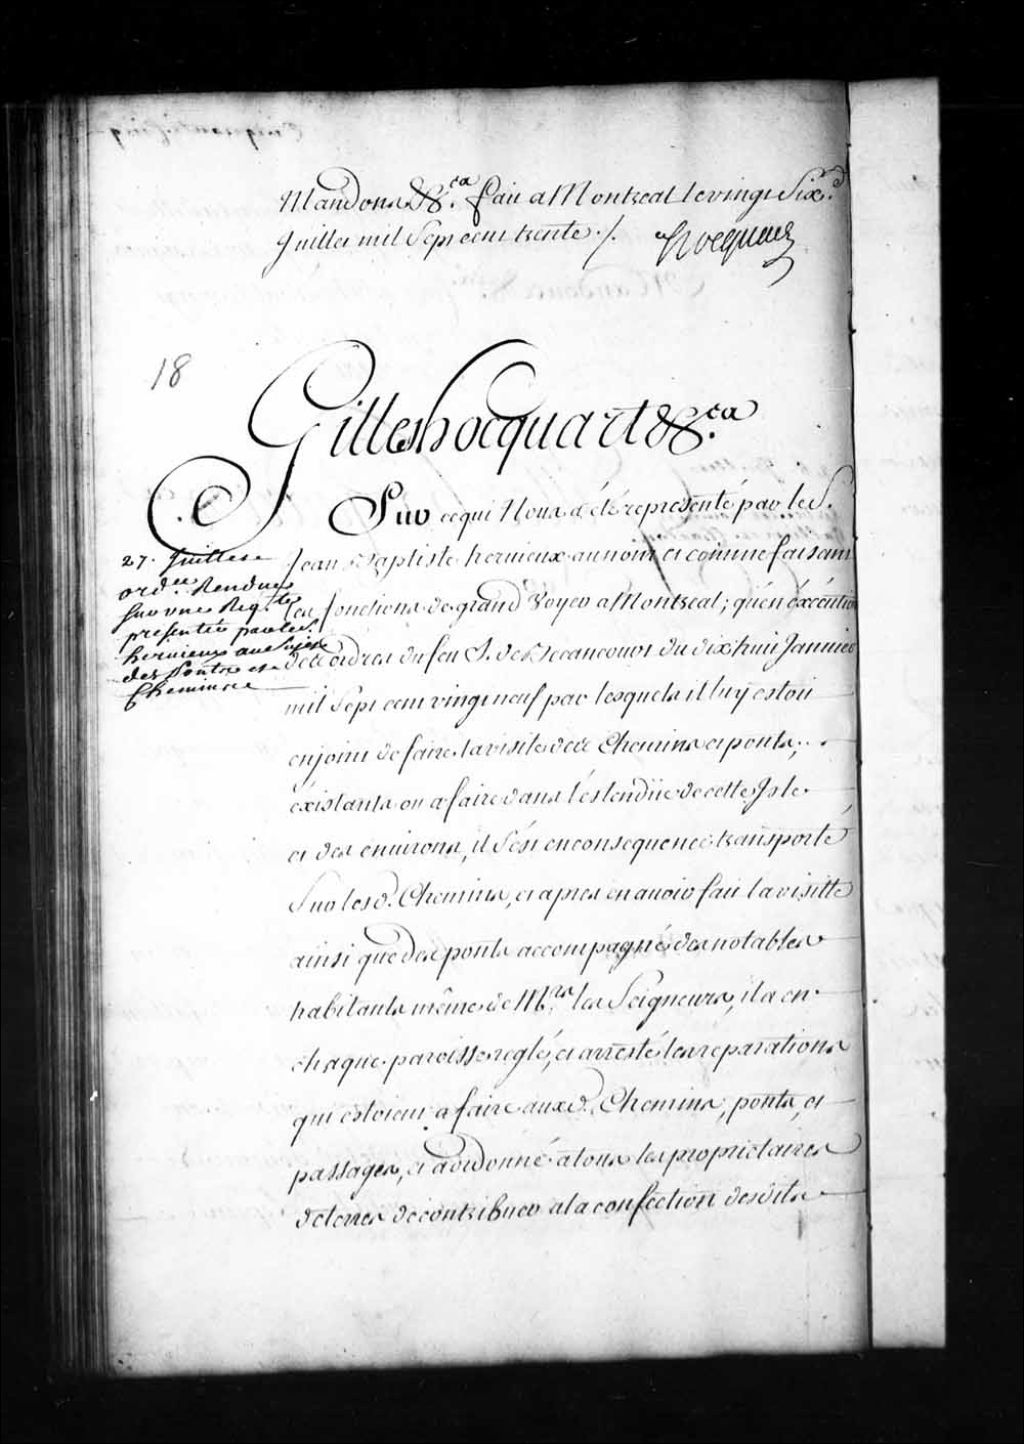 Mandons &c.a fait a Montreal le vingt Six.e
Juillet mil Sept cent trente ./. Hocquart
18
Gilles hocquart &c.a
Sur ce qui Nous a été representé par le S.
Jean Baptiste hervieux au nom et comme faisant
les fonctions de grand Voyer a Montreal; qu'en éxécution
des ordres du feu S. de Becancourt du dix huit Janvier
mil Sept cent vingt neuf par lesquels il luy estoit
enjoint de faire la visite des Chemins et ponts,
éxistants ou a faire dans l'éstendüe de cette Isle
et des environs, il s'ést en consequence transporté
Sur lesd. Chemins, et apres en avoir fait la visitte
ainsi que des ponts accompagné des notables
habitants même de M.rs les Seigneurs, il a en
chaque paroisse reglé, et arresté les reparations
qui estoient a faire auxd. Chemins, ponts, et
passages, et a ordonné a tous les proprietaires
de terres de contribuer a la confection desdits
27. Juillet
ord.ce Rendue
sur une Req.te
presentée par le S.
hervieux au Sujet
des Ponts et
Chemins